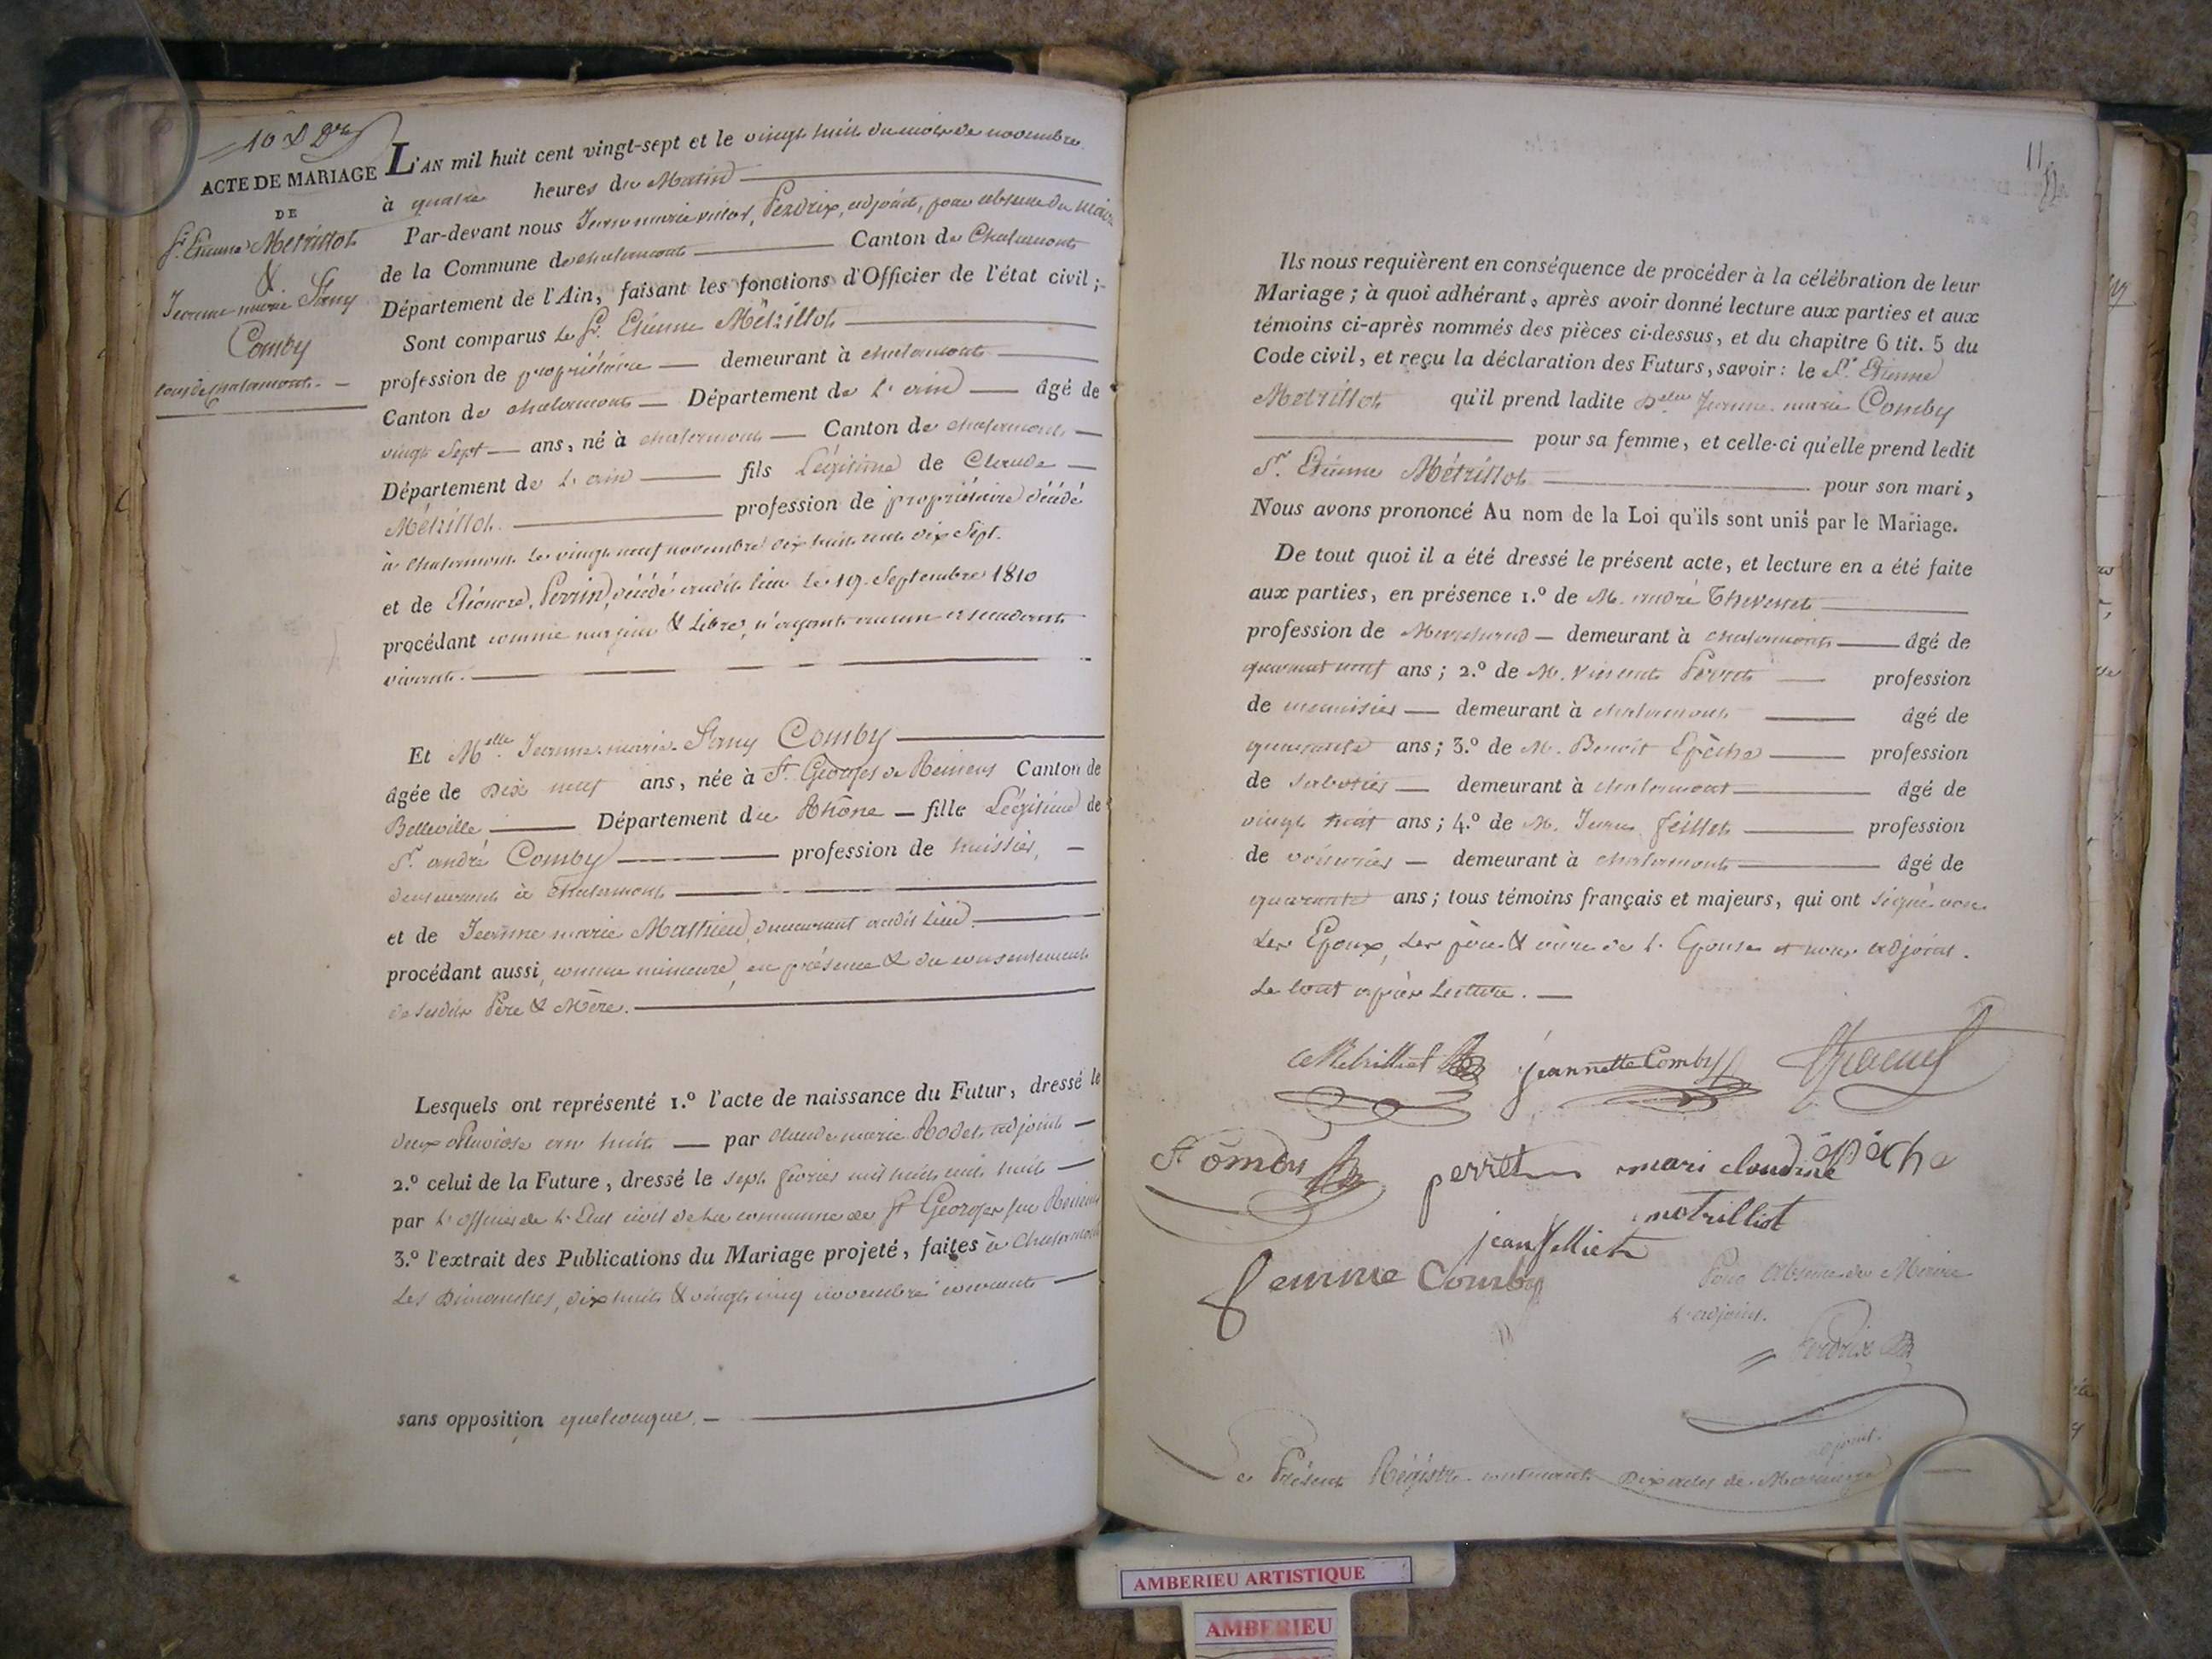 10 & Der
ACTE DE MARIAGE
DE
Sr. Etienne Métrillot
&
Jeanne marie Stany
Comby
tous de chalamont. —
L'AN mil huit cent vingt-sept et le vingt huit du mois de novembre
à quatre heures du Matin
Par-devant nous Perdrix, adjoint, pour absence du maire
de la Commune de chalamont Canton de Chalamont
Département de l'Ain, faisant les fonctions d'Officier de l'état civil ;
Sont comparus Le Sr. Etienne Métrillot
profession de propriétaire — demeurant à chalamont
Canton de chalamont — Département de L'ain — âgé de
vingt sept — ans, né à chalamont — Canton de chalamont —
Département de L'ain — fils Légitime de Claude —
Métrillot. profession de propriétaire décédé
à chalamont le vingt neuf novembre dix huit cent dix sept.
et de Eléonore Perrin, décédé audit lieu le 19. Septembre 1810
procédant comme majeur & Libre, n'ayant aucun ascendant
vivant.
Et Melle. Jeanne-marie-Stany Comby
âgée de Dix neuf ans, née à St. Georges de Reneins Canton de
Belleville — Département du Rhône — fille Légitime de
Sr. andré Comby — profession de huissier, —
demeurant à Chalamont
et de Jeanne marie Mathieu, demeurant audit lieu.
procédant aussi, comme mineure, en présence & du consentement
de sesdits Père & Mère.
Lesquels ont représenté 1.º l'acte de naissance du Futur, dressé le
deux Pluviose an huit — par Claude marie Rodet adjoint —
2.º celui de la Future, dressé le sept février mil huit cent huit —
par L'officier de L'Etat civil de la commune de St Georges Reneins
3.º l'extrait des Publications du Mariage projeté, faites à Chalamont
Les Dimanches, dix huit & vingt cinq novembre courant —
sans opposition quelconque. —
11
Ils nous requièrent en conséquence de procéder à la célébration de leur
Mariage ; à quoi adhérant, après avoir donné lecture aux parties et aux
témoins ci-après nommés des pièces ci-dessus, et du chapitre 6 tit. 5 du
Code civil, et reçu la déclaration des Futurs, savoir : le Sr. Etienne
Métrillot qu'il prend ladite Delle Jeanne-marie Comby
pour sa femme, et celle-ci qu'elle prend ledit
Sr. Etienne Métrillot pour son mari,
Nous avons prononcé Au nom de la Loi qu'ils sont unis par le Mariage.
De tout quoi il a été dressé le présent acte, et lecture en a été faite
aux parties, en présence 1.º de M. andré Thevenet
profession de Marchand — demeurant à chalamont — âgé de
quarant neuf ans ; 2.º de M. Vincent Perret — profession
de menuisier — demeurant à chalamont — âgé de
quarante ans ; 3.º de M. Benoit Epèche — profession
de sabotier — demeurant à chalamont — âgé de
vingt huit ans ; 4.º de M. Jean feillet — profession
de voiturier — demeurant à chalamont — âgé de
quarante ans ; tous témoins français et majeurs, qui ont signé avec
Les Epoux, Les père & mère de L'Epouse et nous adjoint.
Le tout après Lecture. —
Metrillot jeannette Comby
Comby perret mari claudine
épèche
metrilliot
jean fellliet
femme Comby
Pour absence du Maire
L'adjoint.
Perdrix
adjoint.
Le Présent Régistre contenant Dix actes de Mariage
AMBERIEU ARTISTIQUE
AMBERIEU